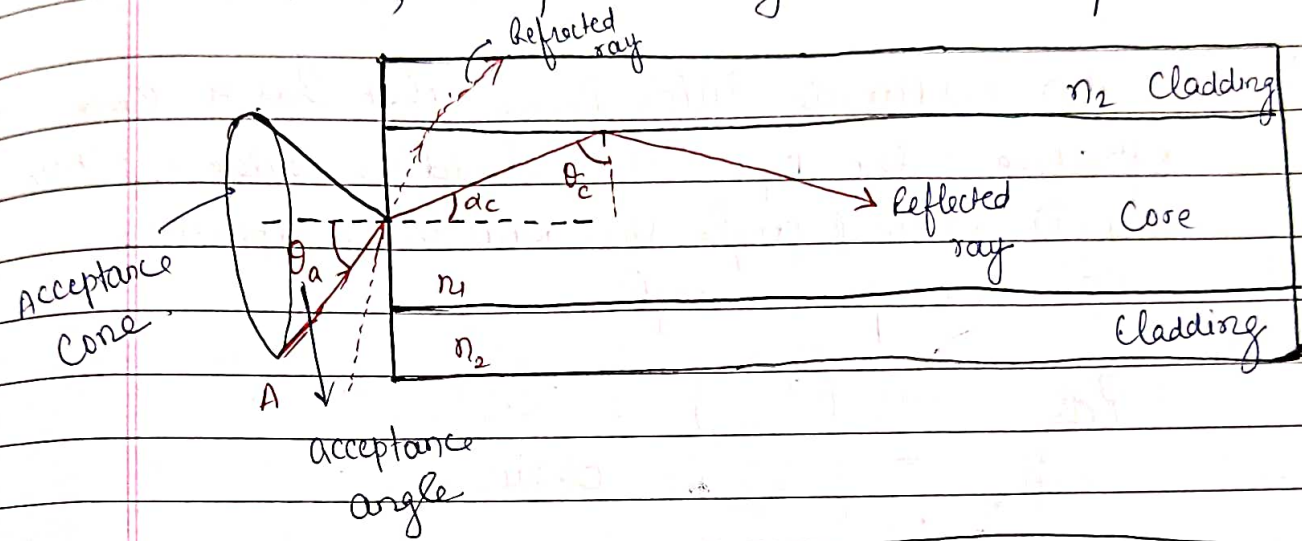 Refracted
ray
n2 Cladding
θc
αc
Reflected
ray
Core
θa
n1
Acceptance
Cone.
Cladding
n2
A
acceptance
angle